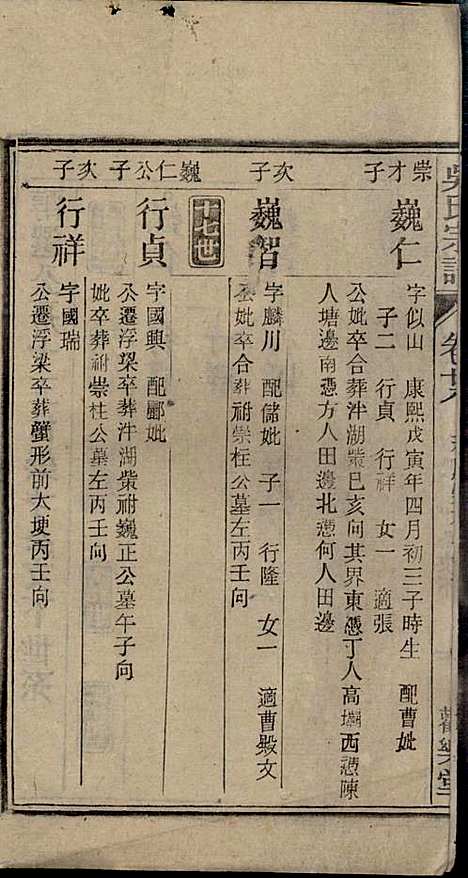 吳氏宗譜
崇才子
巍仁
字似山 康熙戊寅年四月初三子時生 配曹妣
子二 行貞 行祥 女一 適張
公妣卒合葬泮湖柴巳亥向其界東憑丁人高塥西憑陳
人塘邊南憑方人田邊北憑何人田邊
次子
巍智
字麟川 配儲妣 子一 行隆 女一 適曹毅文
公妣卒合葬祔崇柱公墓左丙壬向
十七世
巍仁公子
行貞
字國興 配酈妣
公遷浮梁卒葬汼湖柴祔巍正公墓午子向
妣卒葬祔崇柱公墓左丙壬向
次子
行祥
字國瑞
公遷浮梁卒葬蟹形前大埂丙壬向